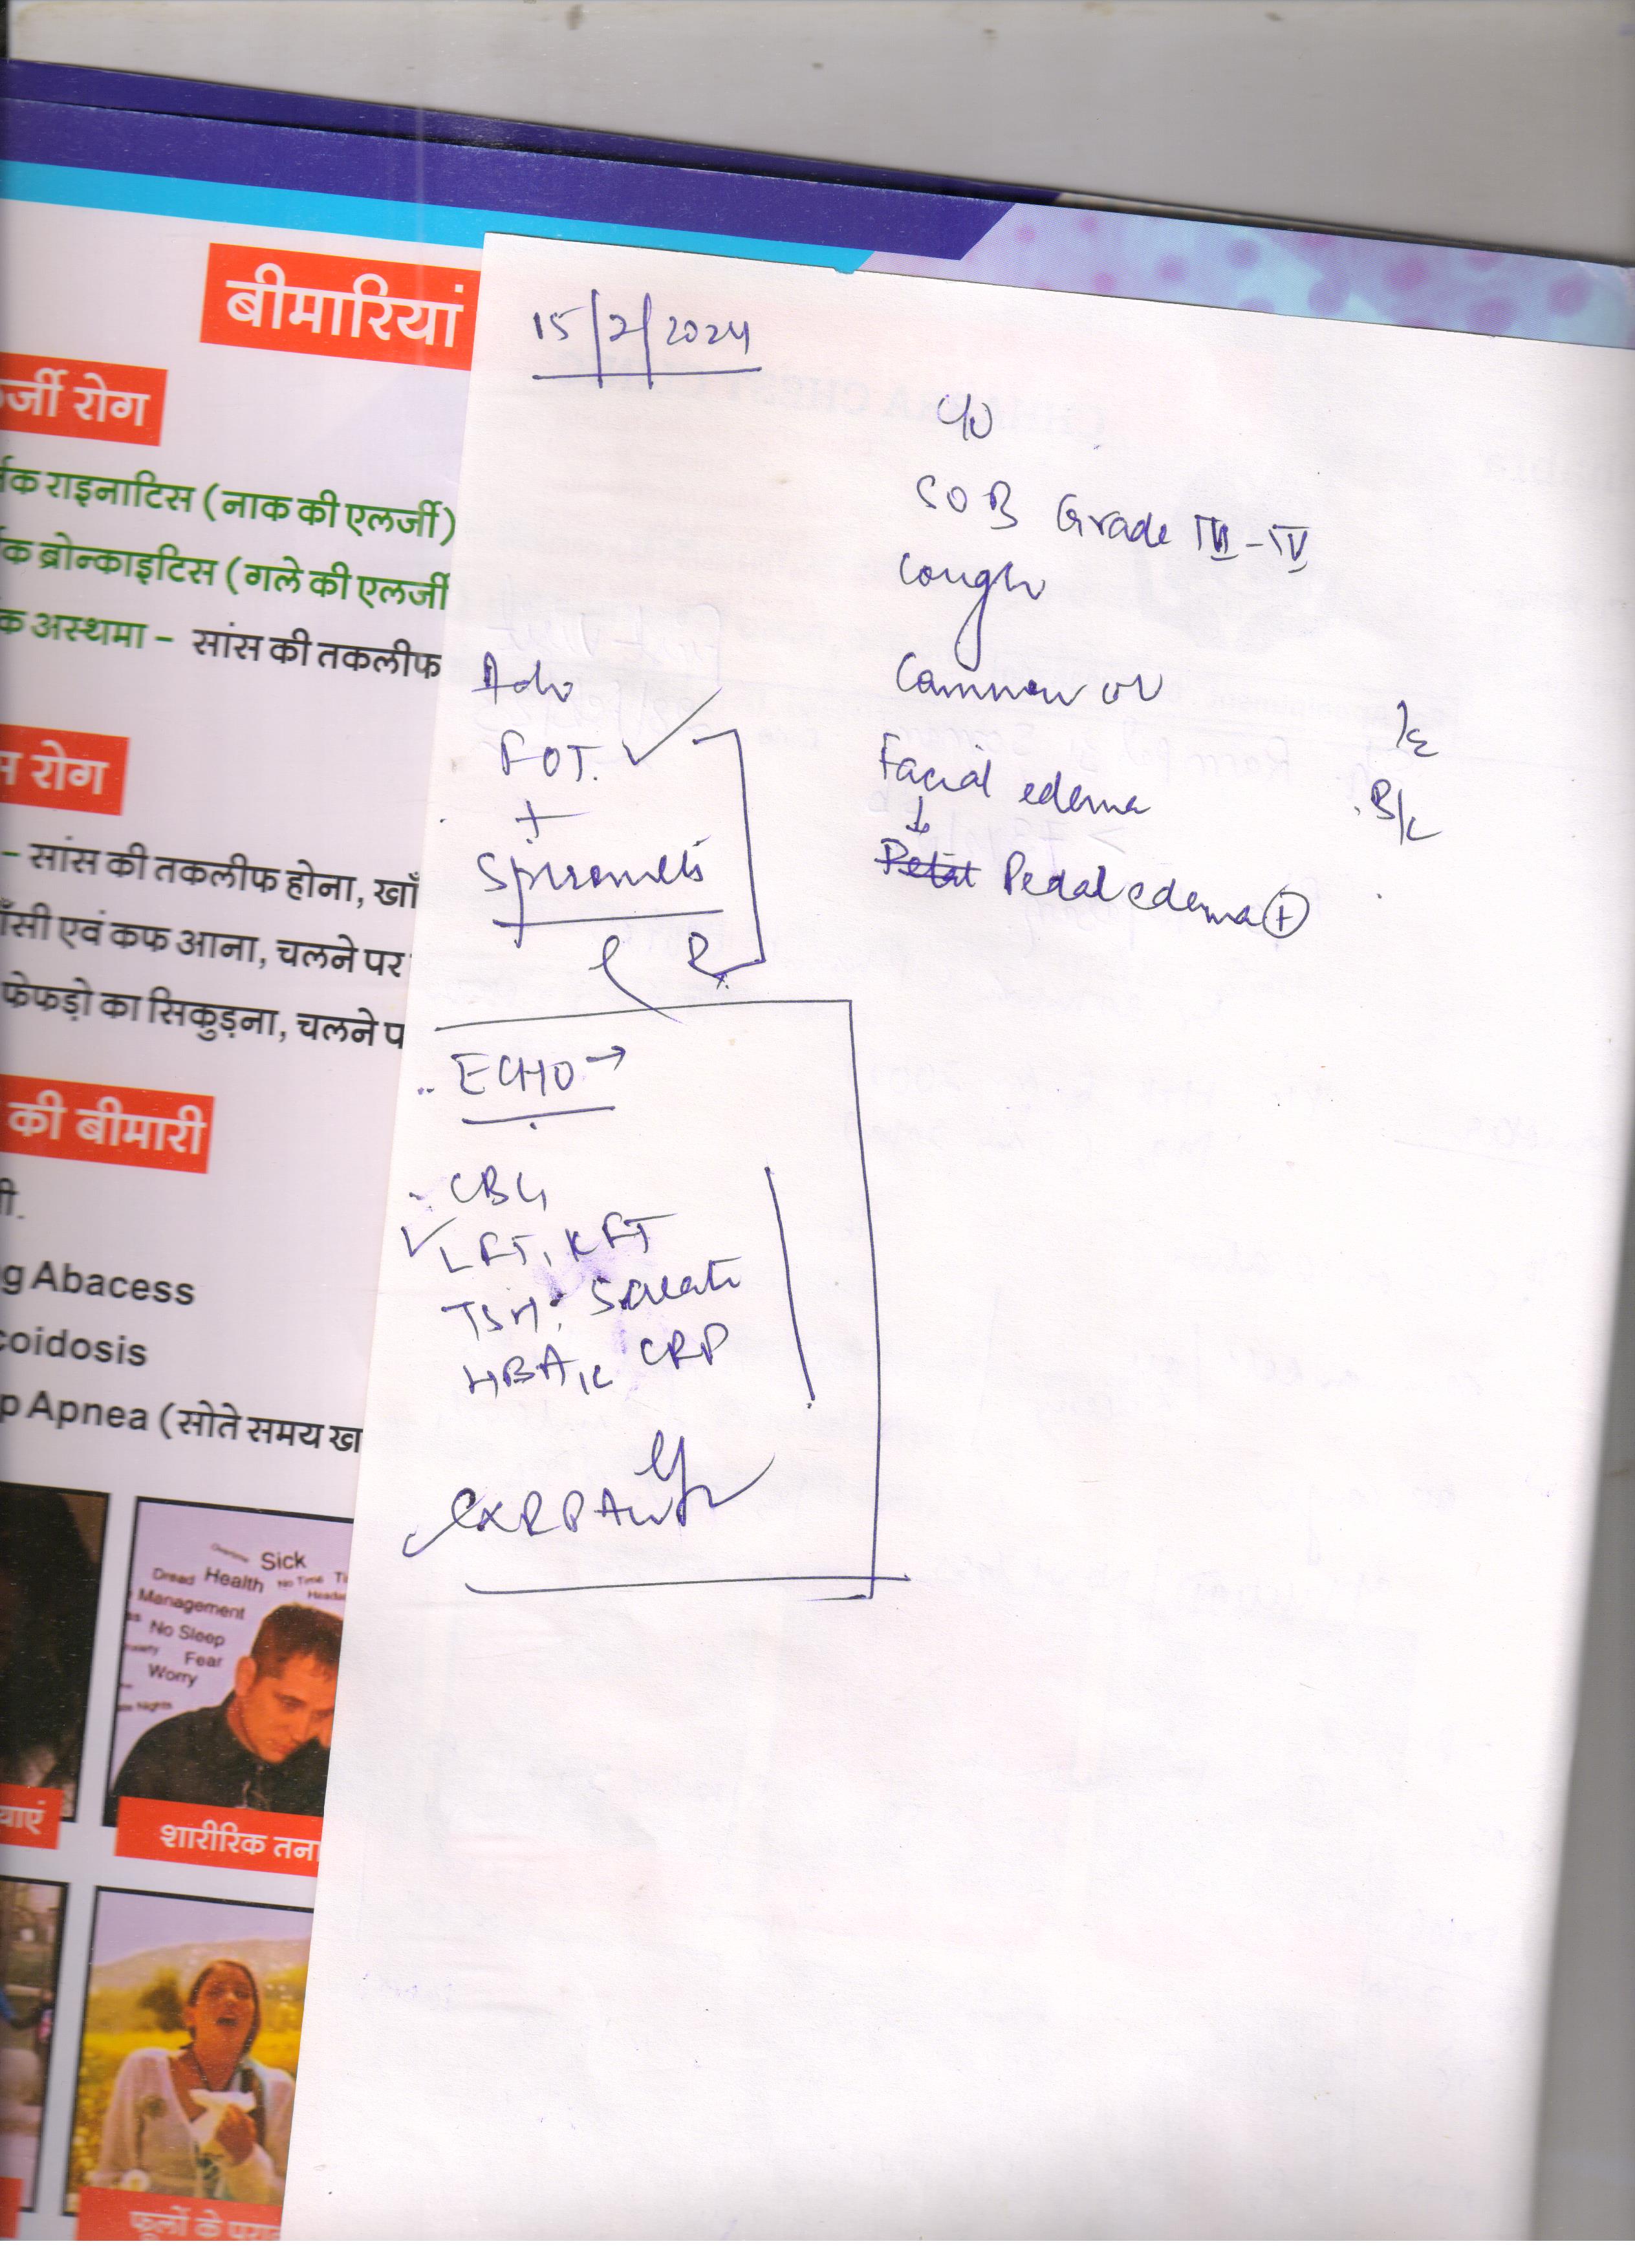 बीमारियां
र्जी रोग
र्जिक राइनाटिस (नाक की एलर्जी)
क ब्रोन्काइटिस (गले की एलर्जी
क अस्थमा - सांस की तकलीफ
स रोग
- सांस की तकलीफ होना, खाँ
ाँसी एवं कफ आना, चलने पर
फेफड़ो का सिकुड़ना, चलने प
की बीमारी
ी.
g Abacess
coidosis
p Apnea (सोते समय खा
Sick
Dread Health No Time Ti
Management
No Sleep
Fear
Worry
Nights
याएं
शारीरिक तना
फूलों के परा
15/2/2024
C/O
SOB Grade III-IV
Cough
Facial edema
↓
Pedal edema +
B/L
Adv
FOT. ✓
+
Spirometry
ECHO →
LFT, KFT
TSH,
HBA1C CRP
CXR PA